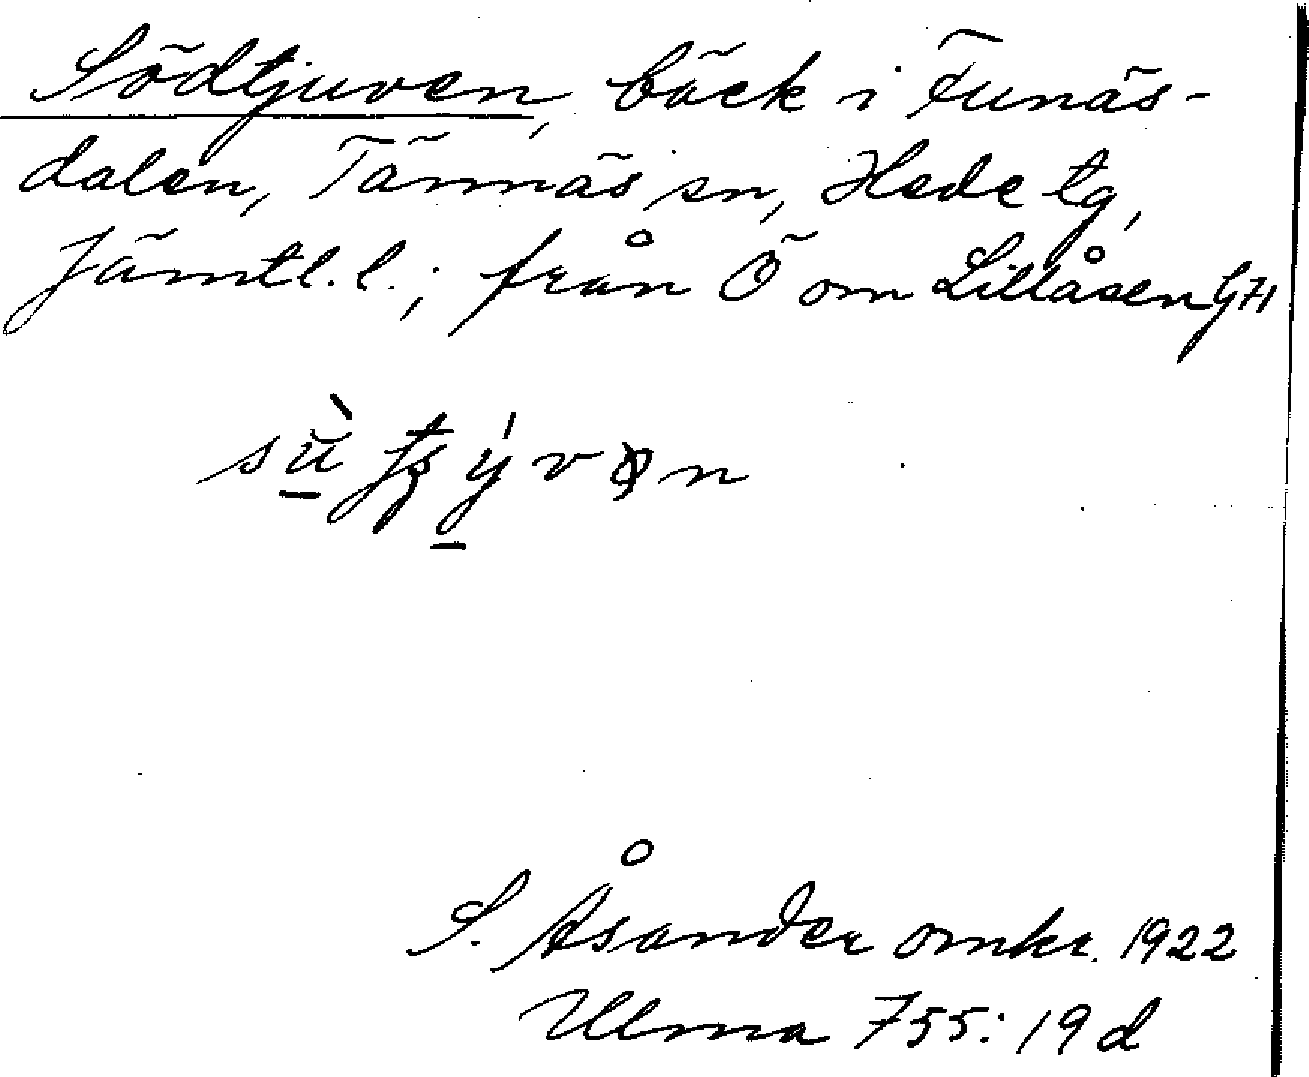 Södtjuven, bäck i Funäs-
dalen, Tännäs sn, Hede tg,
Jämtl.l.; från Ö om Lillåsen G71
S. Åsander omkr. 1922
Ulma 755:19d